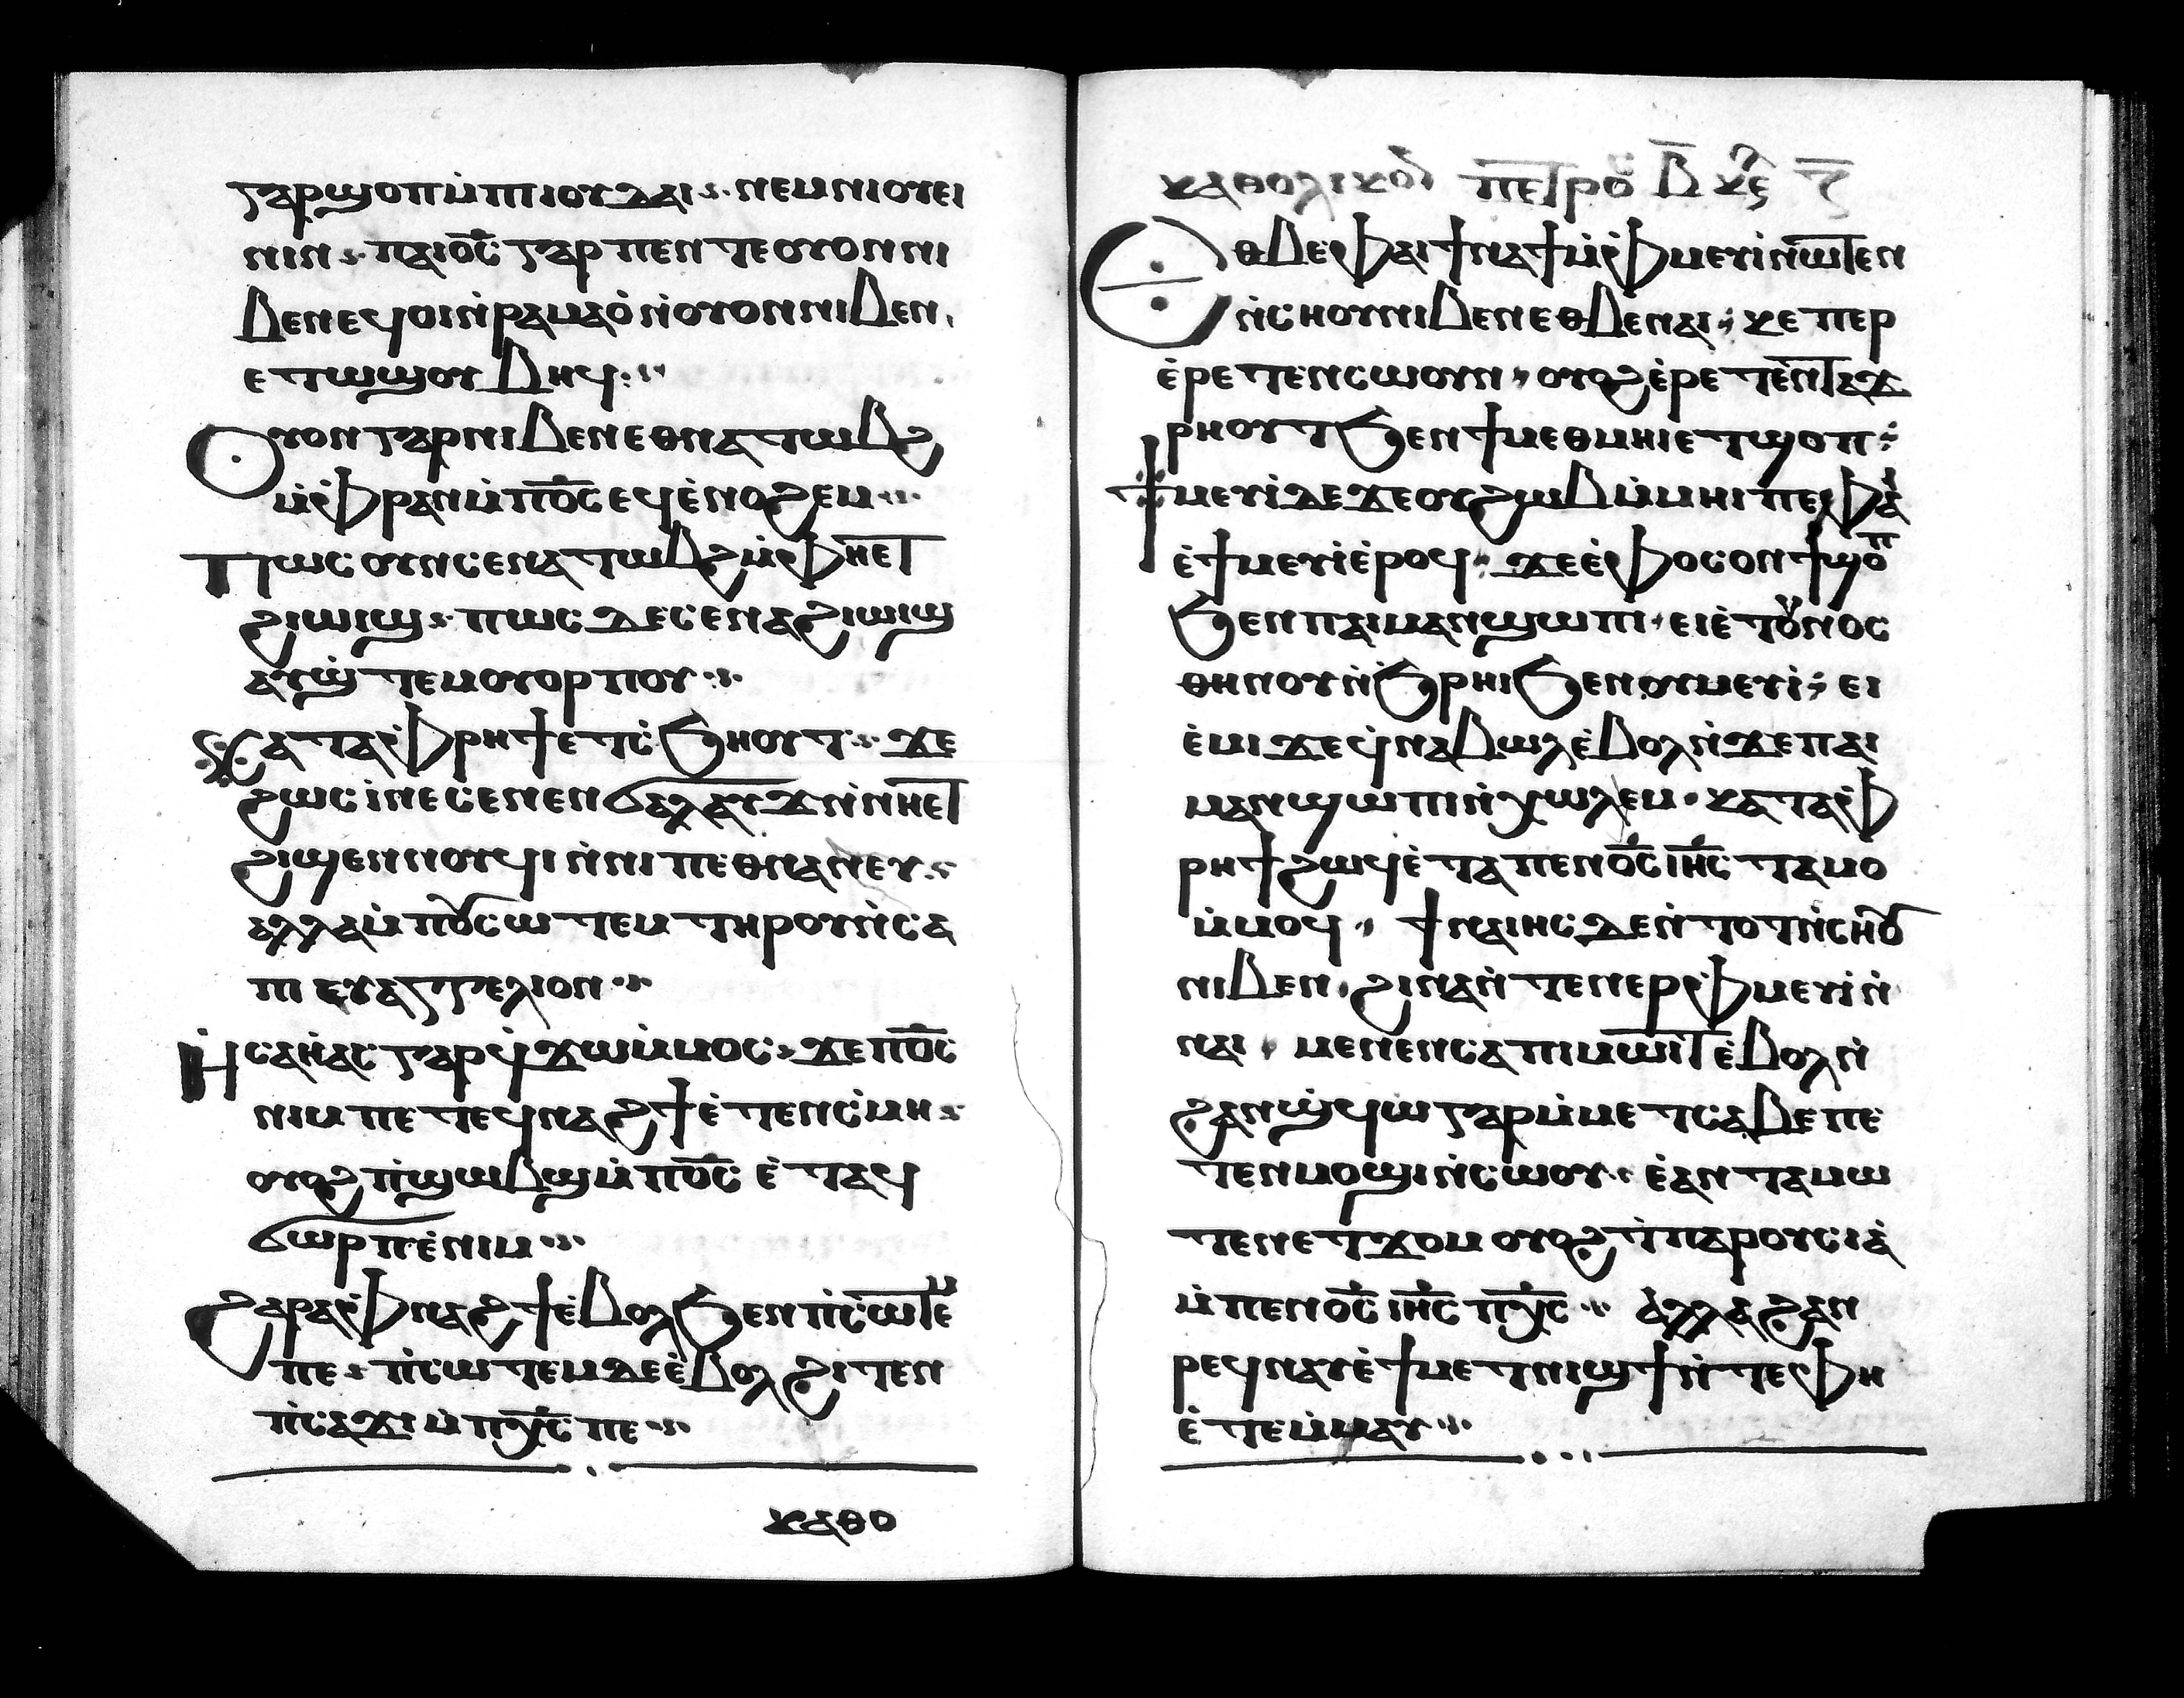 ⲅⲁⲣϣⲟⲡⲙ̀ⲡⲓⲟⲩⲇⲁⲓ· ⲛⲉⲙⲛⲓⲟⲩⲉⲓ
ⲛⲓⲛ· ⲡⲁⲓⲟ̅ⲥ̅ ⲅⲁⲣ ⲡⲉⲛⲧⲉⲟⲩⲟⲛⲛⲓ
ⲃⲉⲛⲉϥⲟⲓⲛ̀ⲣⲁⲙⲁⲟ̀ⲛ̀ⲟⲩⲟⲛⲛⲓⲃⲉⲛ·
ⲉⲧⲱϣⲟⲩⲃⲏϥ:·
ⲟⲩⲟⲛⲅⲁⲣⲛⲓⲃⲉⲛⲉⲑⲛⲁⲧⲱⲃϩ
ⲙ̀ⲫ̀ⲣⲁⲛⲙ̀ⲡⲟ̅ⲥ̅ⲉϥⲉ̀ⲛⲟϩⲉⲙ·:·
ⲡⲱⲥⲟⲩⲛⲥⲉⲛⲁⲧⲱⲃϩⲙ̀ⲫⲏⲉⲧ
ϩⲓⲱⲓϣ· ⲡⲱⲥⲇⲉⲥⲉⲛⲁϩⲓⲱⲓϣ
ⲁⲩϣ̀ⲧⲉⲙⲟⲩⲟⲣⲡⲟⲩ·:·
ⲕⲁⲧⲁⲫ̀ⲣⲏϯⲉⲧⲥ̀ϧⲏⲟⲩⲧ· ϫⲉ
ϩⲱⲥⲓ̀ⲛⲉⲥⲉⲛⲉⲛϭⲁⲗⲁⲩϫⲛ̀ⲛⲏⲉⲧ
ϩⲓϣⲉⲛⲛⲟⲩϥⲓⲛ̀ⲛⲓⲡⲉⲑⲛⲁⲛⲉⲩ·
ⲁⲗⲗⲁⲙ̀ⲡⲟⲩⲥⲱⲧⲉⲙⲧⲏⲣⲟⲩⲛ̀ⲥⲁ
ⲡⲓⲉⲩⲁⲅⲅⲉⲗⲓⲟⲛ·:·
ⲏ̀ⲥⲁⲏ̀ⲁⲥⲅⲁⲣϥ̀ϫⲱⲙ̀ⲙⲟⲥ· ϫⲉⲡⲟ̅ⲥ̅
ⲛⲓⲙⲡⲉⲧⲉϥⲛⲁϩϯⲉ̀ⲧⲉⲛⲥ̀ⲙⲏ·
ⲟⲩⲟϩⲡ̀ϣⲱⲃϣⲙ̀ⲡⲟ̅ⲥ̅ ⲉ̀ⲧⲁϥ
ϭⲱⲣⲡⲉ̀ⲛⲓⲙ·:·
ϩⲁⲣⲁⲫ̀ⲛⲁϩϯⲉ̀ⲃⲟⲗϧⲉⲛⲡ̀ⲥⲱⲧⲉⲙ
ⲡⲉ· ⲡ̀ⲥⲱⲧⲉⲙⲇⲉⲉ̀ⲃⲟⲗϩⲓⲧⲉⲛ
ⲡ̀ⲥⲁϫⲓⲙ̀ⲡⲭ̅ⲥ̅ⲡⲉ·:·
ⲕⲁⲑⲟ
ⲕⲁⲑⲟⲗⲓⲕⲟⲛ ⲡⲉⲧⲣⲟⲩ ⲃ̅ ⲕⲉ ⲍ̅
ⲉⲑⲃⲉⲫⲁⲓϯⲛⲁϯⲙ̀ⲫ̀ⲙⲉⲩⲓ̀ⲛⲱⲧⲉⲛ
ⲛ̀ⲥⲏⲟⲩⲛⲓⲃⲉⲛⲉⲑⲃⲉⲛⲁⲓ· ⲕⲉⲡⲉⲣ
ⲉ̀ⲣⲉⲧⲉⲛⲥⲱⲟⲩⲛ· ⲟⲩⲟϩⲉ̀ⲣⲉⲧⲉⲛⲧⲁϫ
ⲣⲏⲟⲩⲧϧⲉⲛϯⲙⲉⲑⲙⲏⲓⲉⲧϣⲟⲡ·
ϯⲙⲉⲩⲓ̀ⲇⲉϫⲉⲟⲩϩⲱⲃⲙ̀ⲙⲏⲓⲡⲉⲫⲁⲓ
ⲉ̀ϯⲙⲉⲩⲓ̀ⲉ̀ⲣⲟϥ· ϫⲉⲉ̀ⲫⲟⲥⲟⲛϯϣⲟⲡ
ϧⲉⲛⲡⲁⲓⲙⲁⲛϣⲱⲡⲓ· ⲉⲓⲉ̀ⲧⲟⲩⲛⲟⲥ
ⲑⲏⲛⲟⲩⲛ̀ϧⲣⲏⲓϧⲉⲛⲟⲩⲙⲉⲩⲓ̀· ⲉⲓ
ⲉ̀ⲙⲓϫⲉϥ̀ⲛⲁⲃⲱⲗⲉ̀ⲃⲟⲗⲛ̀ϫⲉⲡⲁⲓ
ⲙⲁⲛϣⲱⲡⲓⲛ̀ⲭⲱⲗⲉⲙ· ⲕⲁⲧⲁⲫ̀
ⲣⲏϯϩⲱϥⲉ̀ⲧⲁⲡⲉⲛⲟ̅ⲥ̅ⲓⲏ̅ⲥ̅ ⲧⲁⲙⲟ
ⲙ̀ⲙⲟϥ· ϯⲛⲁⲓⲏⲥⲇⲉⲛ̀ⲧⲟⲧⲛ̀ⲥⲏⲟⲩ
ⲛⲓⲃⲉⲛ· ϩⲓⲛⲁⲛ̀ⲧⲉⲛⲉⲣⲫ̀ⲙⲉⲩⲓ̀ⲛ̀
ⲛⲁⲓ· ⲙⲉⲛⲉⲛⲥⲁⲡⲓⲙⲱⲓⲧⲉ̀ⲃⲟⲗⲛ̀
ϩⲁⲛϣ̀ϥⲱⲅⲁⲣⲙ̀ⲙⲉⲧⲥⲁⲃⲉⲡⲉ
ⲧⲉⲛⲙⲟϣⲓⲛ̀ⲥⲱⲟⲩ· ⲉ̀ⲁⲛⲧⲁⲙⲱ
ⲧⲉⲛⲉⲧϫⲟⲙ ⲟⲩⲟϩϯⲡⲁⲣⲟⲩⲥⲓⲁ̀
ⲙ̀ⲡⲉⲛⲟ̅ⲥ̅ ⲓⲏ̅ⲥ̅ ⲡⲭ̅ⲥ̅·:· ⲁⲗⲗⲁϩⲁⲛ
ⲣⲉϥⲛⲁⲩⲉ̀ϯⲙⲉⲧⲛⲓϣϯⲛ̀ⲧⲉⲫⲏ
ⲉ̀ⲧⲉⲙ̀ⲙⲁⲩ·:·